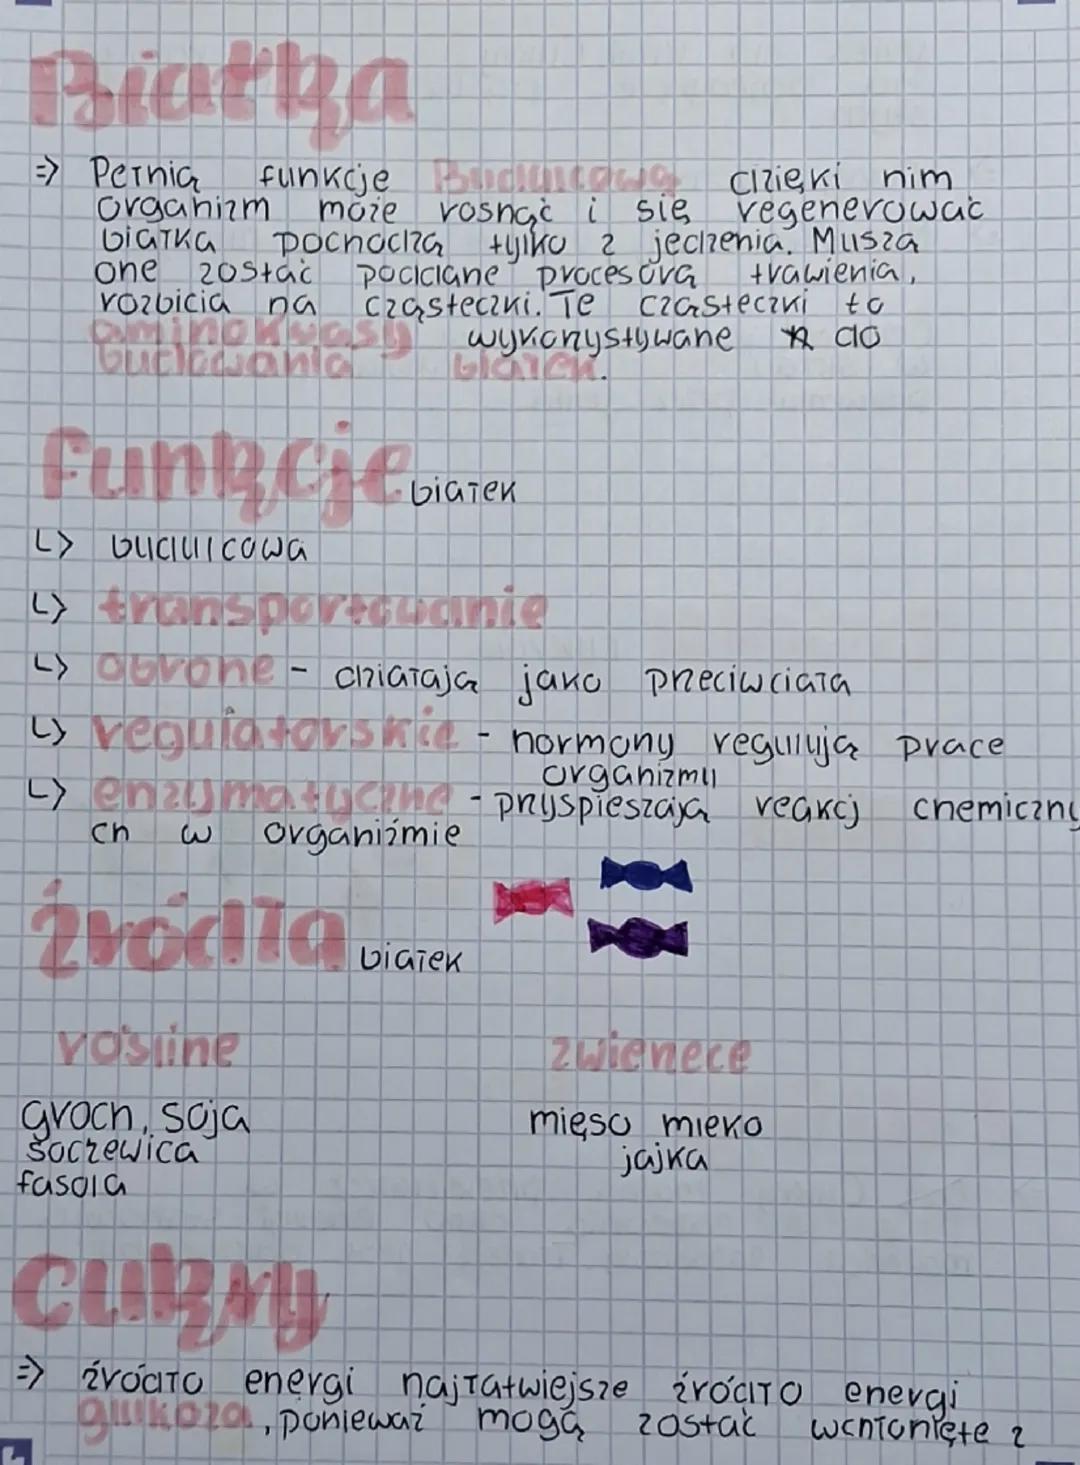 Białka
=> Pełnią funkcje Budulcową dzięki nim
organizm może rosnąć i się regenerować
białka pochodzą tylko z jedzenia. Musza
one zostać poddane procesóra trawienia,
rozbicia na cząsteczki. Te cząsteczki to
aminokwasy wykorzystywane do
budowania białek.
Funkcje białek
↳ budulcowa
↳ transportowanie
↳ obrone - działają jako przeciwciała
↳ regulatorskie - hormony regulują prace
organizmu
↳ enzymatyczne - przyspieszają reakcj chemiczny
ch w organiźmie
Źródła białek
rośline zwierzęce
groch, soja mięso mleko
soczewica jajka
fasola
Cukry
=> źródło energi najłatwiejsze źródło energi
glukoza, ponieważ mogą zostać wchłonięte z